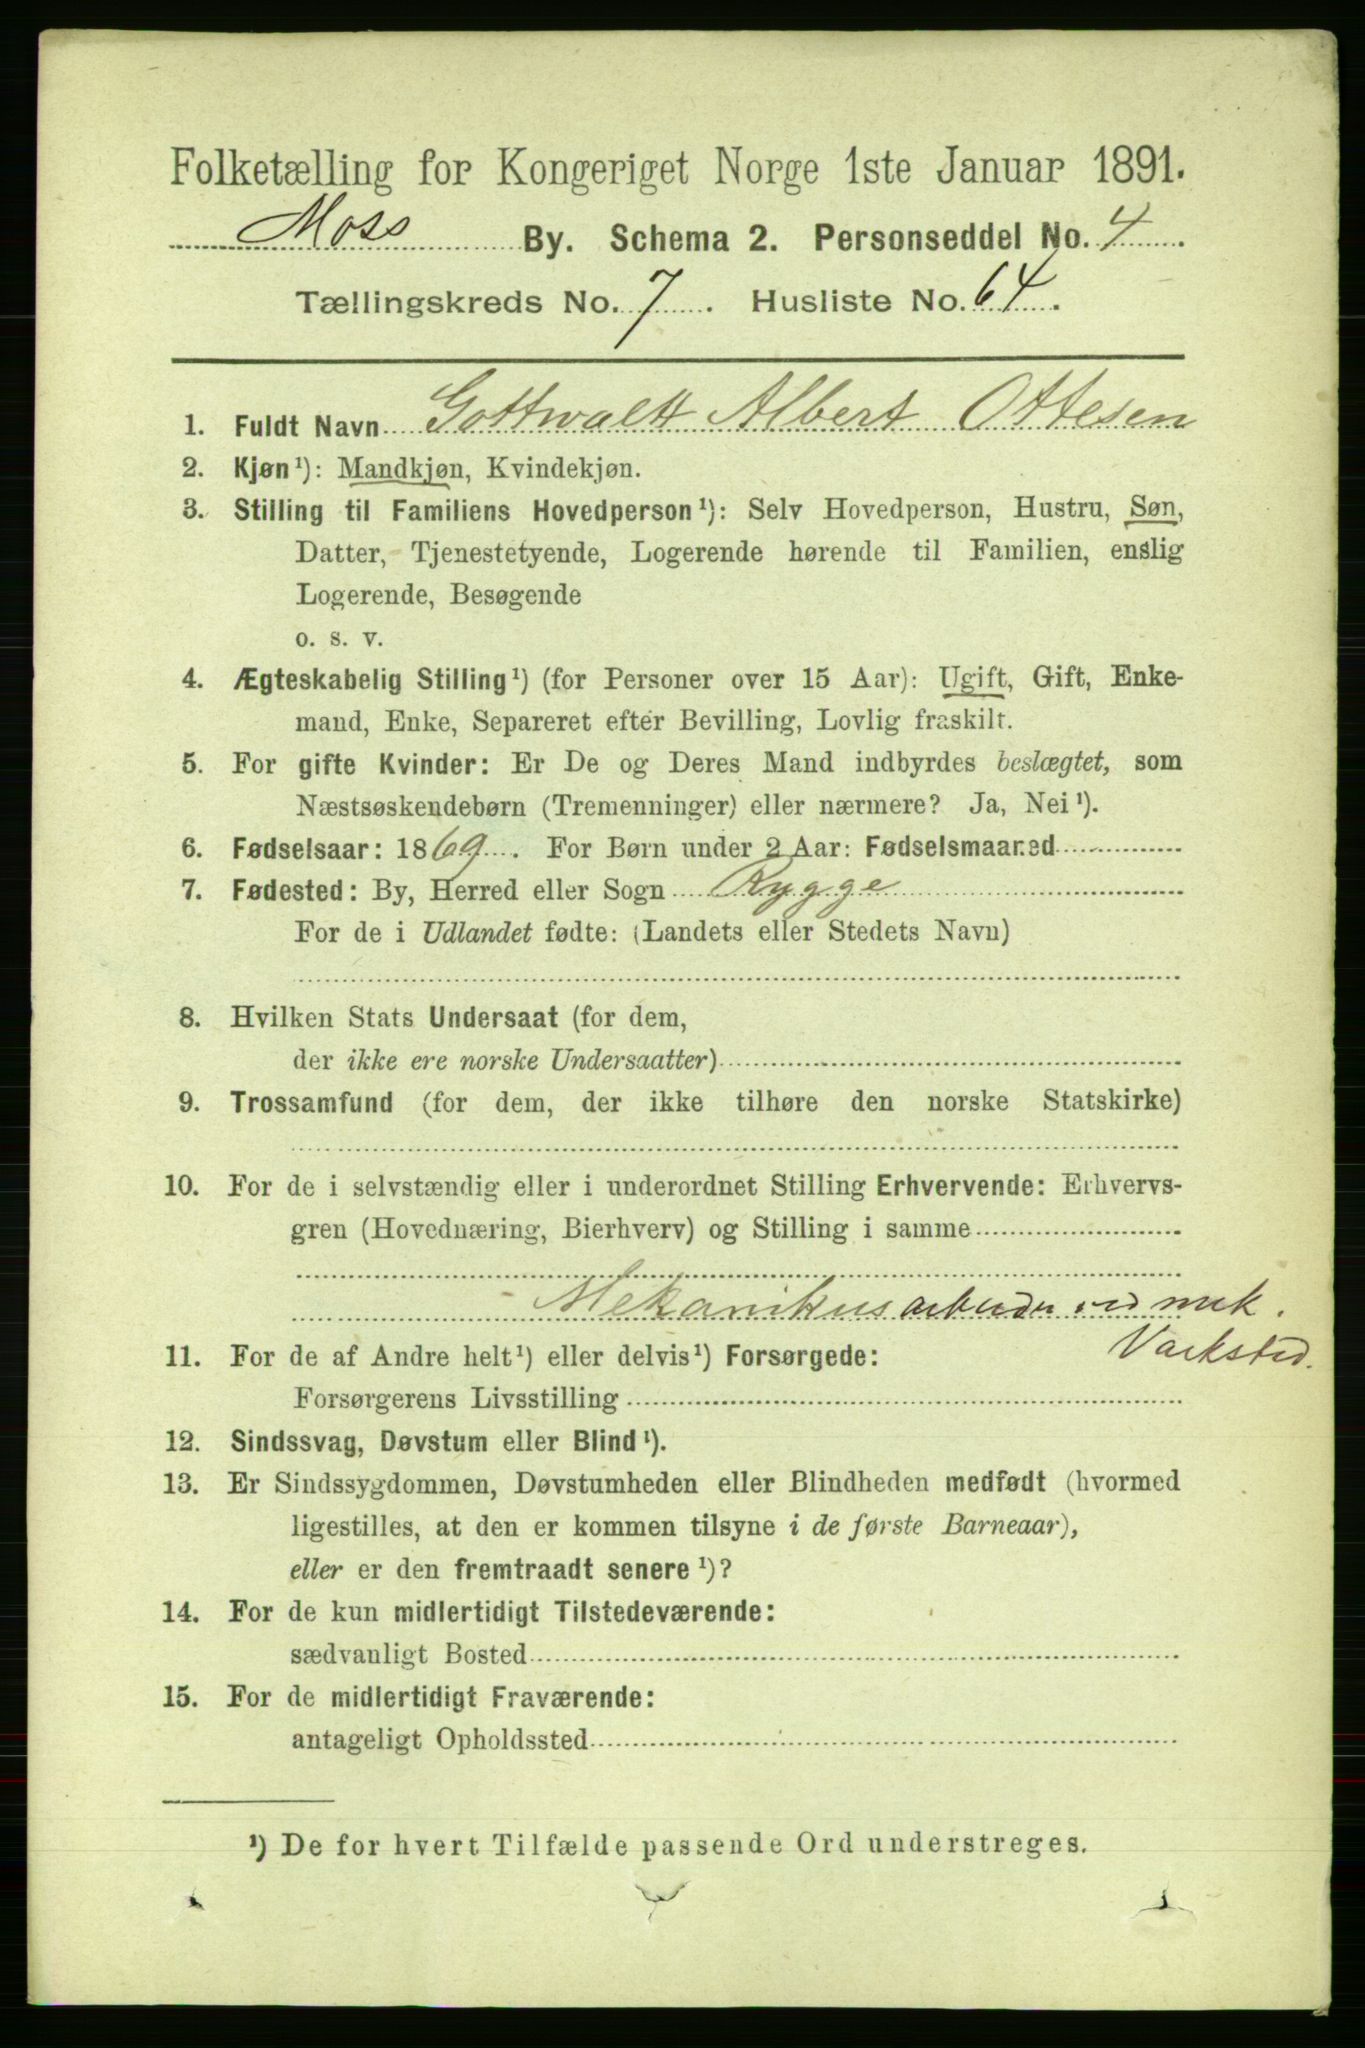 Folketælling for Kongeriget Norge 1ste Januar 1891.
Moss By. Schema 2. Personseddel No. 4.
Tællingskreds No. 7. Husliste No. 64.
1. Fuldt Navn Gottwalt Albert Ottesen
2. Kjøn¹): Mandkjøn, Kvindekjøn.
3. Stilling til Familiens Hovedperson¹): Selv Hovedperson, Hustru, Søn,
Datter, Tjenestetyende, Logerende hørende til Familien, enslig
Logerende, Besøgende
o. s. v.
4. Ægteskabelig Stilling¹) (for Personer over 15 Aar): Ugift, Gift, Enke-
mand, Enke, Separeret efter Bevilling, Lovlig fraskilt.
5. For gifte Kvinder: Er De og Deres Mand indbyrdes beslægtet, som
Næstsøskendebørn (Tremenninger) eller nærmere? Ja, Nei¹).
6. Fødselsaar: 1869. For Børn under 2 Aar: Fødselsmaaned
7. Fødested: By, Herred eller Sogn Rygge
For de i Udlandet fødte: (Landets eller Stedets Navn)
8. Hvilken Stats Undersaat (for dem,
der ikke ere norske Undersaatter)
9. Trossamfund (for dem, der ikke tilhøre den norske Statskirke)
10. For de i selvstændig eller i underordnet Stilling Erhvervende: Erhvervs-
gren (Hovednæring, Bierhverv) og Stilling i samme
Mekanikus arbeider ved mek.
Værksted.
11. For de af Andre helt¹) eller delvis¹) Forsørgede:
Forsørgerens Livsstilling
12. Sindssvag, Døvstum eller Blind¹).
13. Er Sindssygdommen, Døvstumheden eller Blindheden medfødt (hvormed
ligestilles, at den er kommen tilsyne i de første Barneaar),
eller er den fremtraadt senere¹)?
14. For de kun midlertidigt Tilstedeværende:
sædvanligt Bosted
15. For de midlertidigt Fraværende:
antageligt Opholdssted
¹) De for hvert Tilfælde passende Ord understreges.